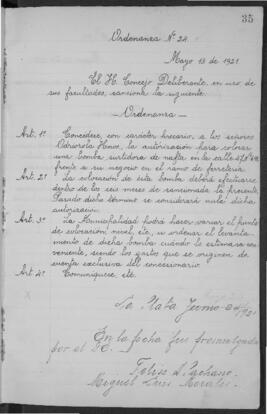 35
Ordenanza Nº 24
Mayo 13 de 1921
El H. Concejo Deliberante, en uso de
sus facultades, sanciona la siguiente
Ordenanza
Art. 1º Concédese, con carácter precario, a los señores
Hnos, la autorización para colocar
una bomba surtidora de nafta en la calle
frente a su negocio en el ramo de ferretería
Art. 2º La colocación de esta bomba deberá efectuarse
dentro de los seis meses de sancionada la presente.
Pasado dicho término se considerará nula dicha
autorización.
Art. 3º La Municipalidad podrá hacer variar el punto
de colocación, nivel, etc., u ordenar el levanta-
miento de dicha bomba cuando lo estimara con-
veniente, siendo los gastos que se originen de
cuenta exclusiva del concesionario.
Art. 4º Comuníquese, etc.
La Plata Junio 1921
En la fecha fué promulgada
por el
Felipe
Miguel Luis Morales.